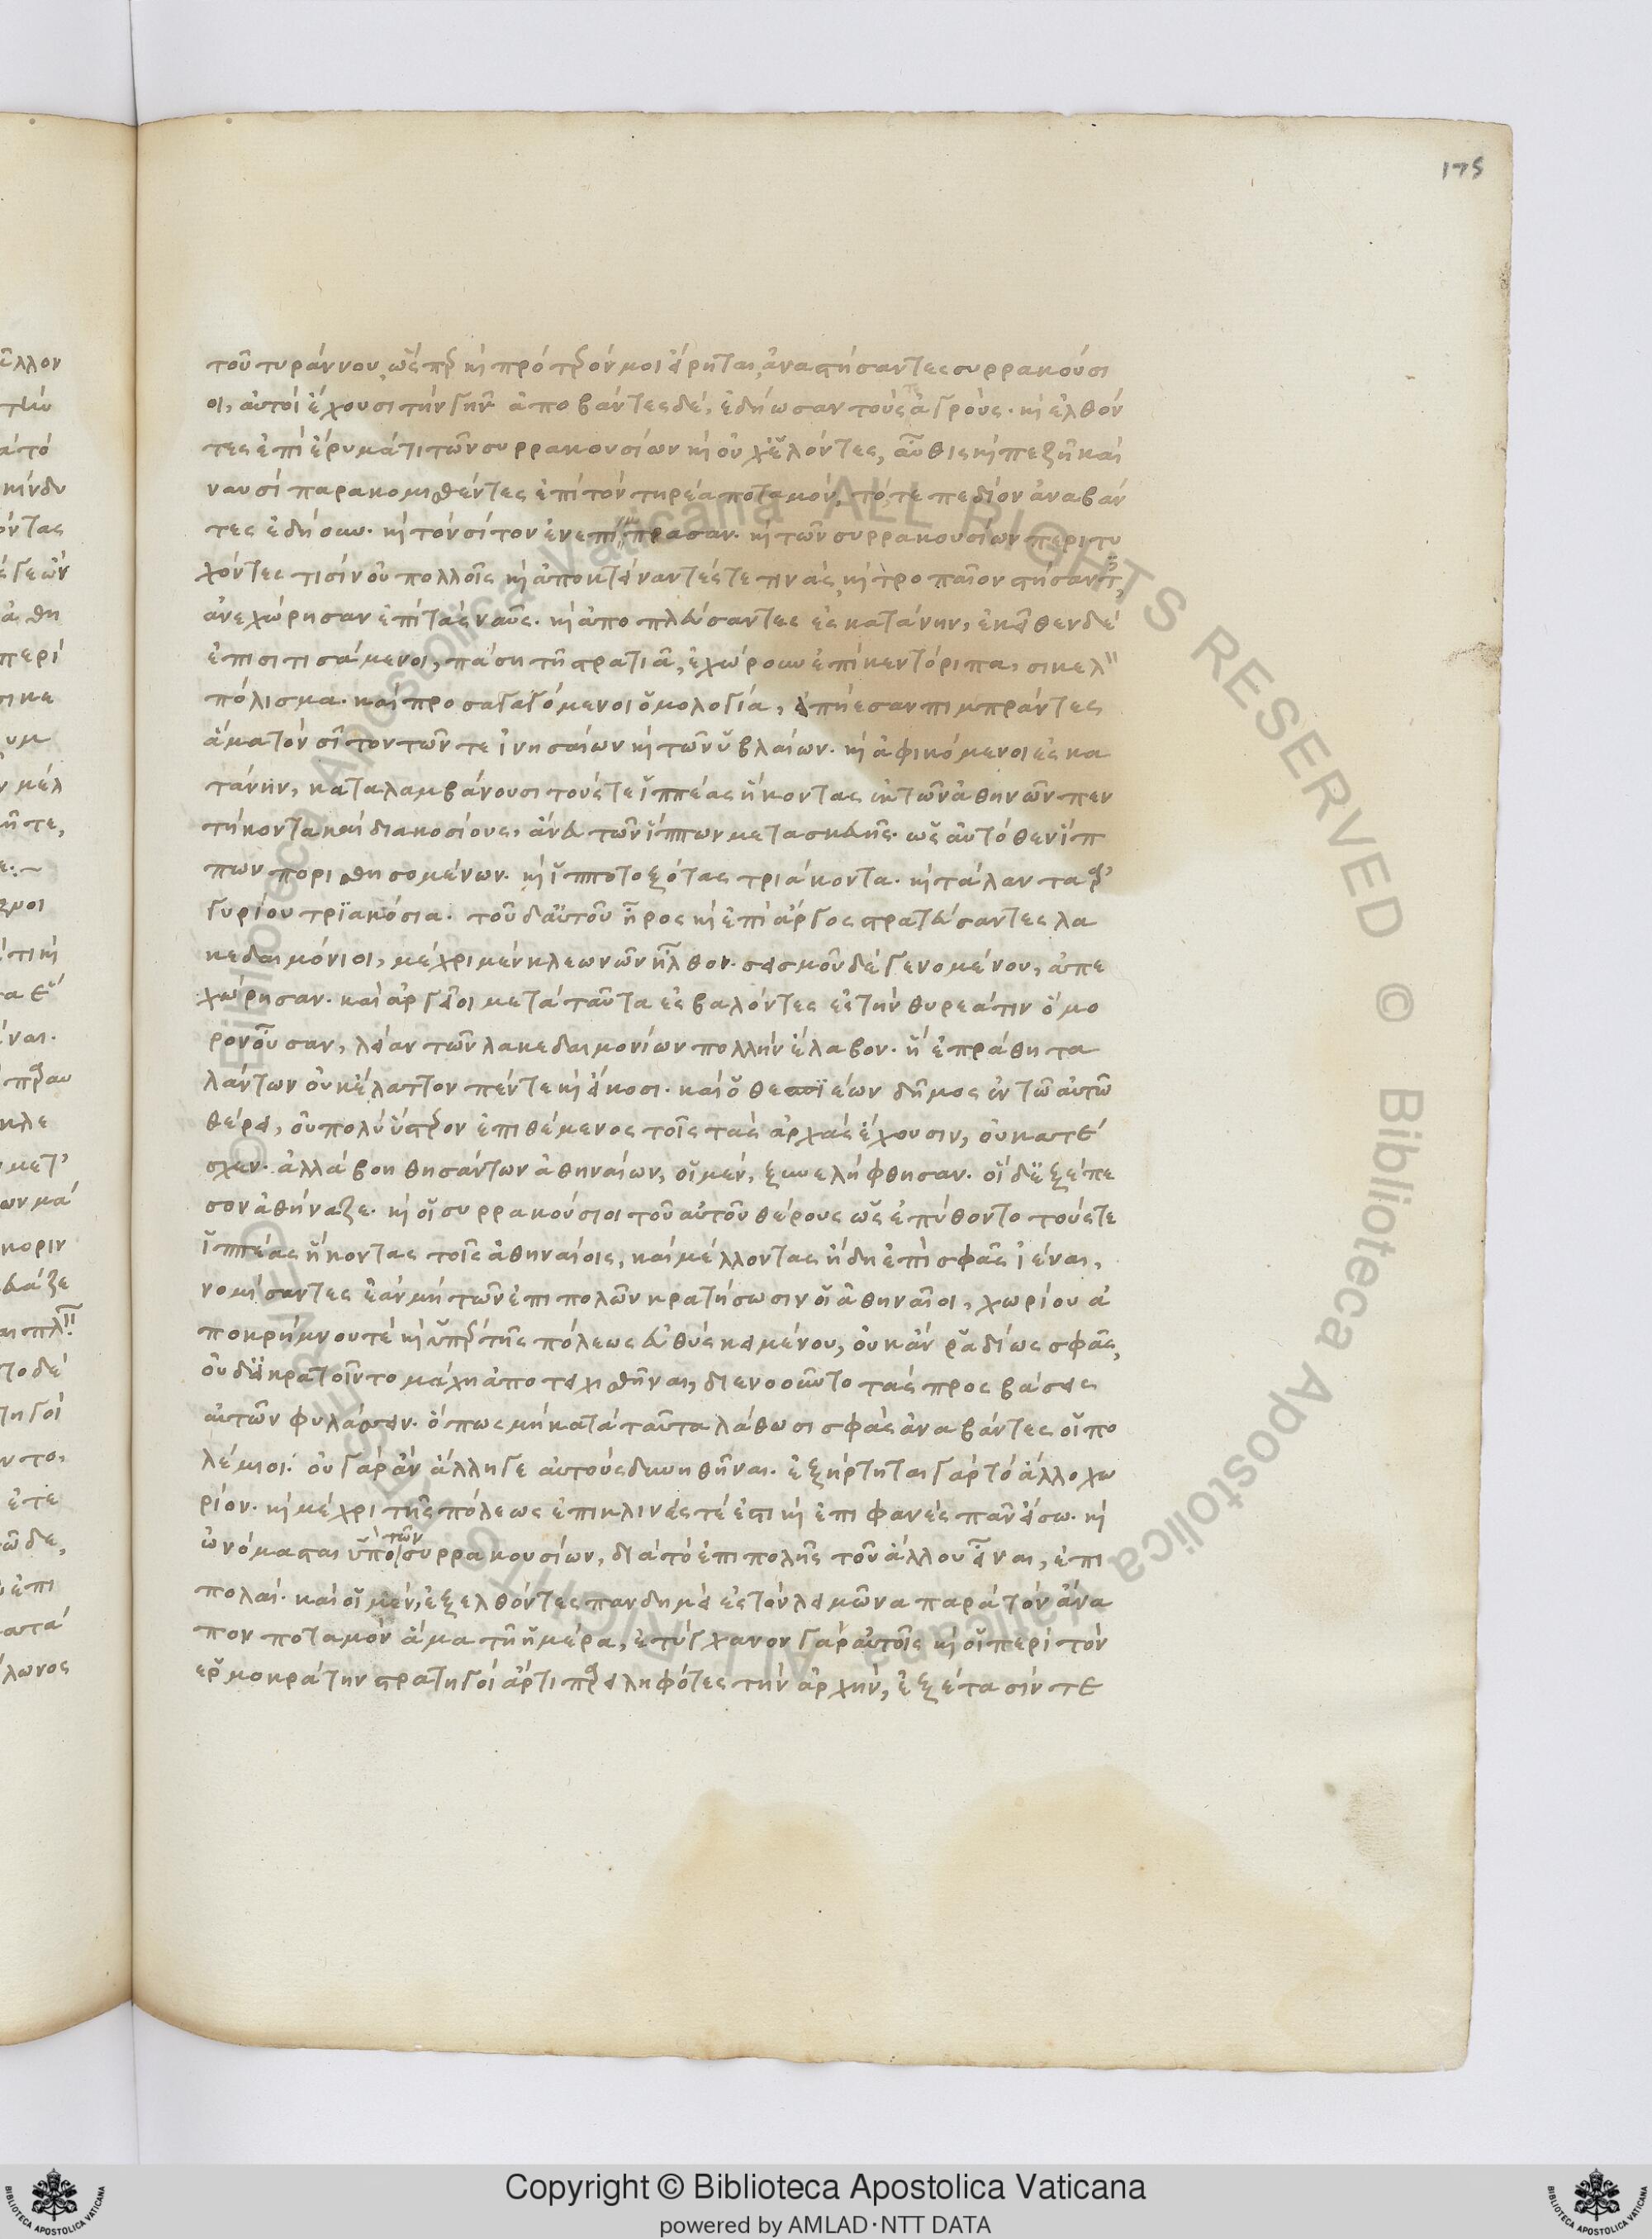 175
τοῦ τυράννου, ὥσπερ καὶ πρότερόν μοι εἴρηται, ἀναστήσαντες συρρακούσι
οι, αὐτοὶ ἔχουσι τὴν γῆν ἀποβάντες δὲ, ἐδήωσαν τούς τε ἀγρούς. καὶ ἐλθόν
τες ἐπὶ ἐρύματι τῶν συρρακουσίων καὶ οὐχ ἑλόντες, αὖθις καὶ πεζῆ καὶ
ναυσὶ παρακομισθέντες ἐπὶ τὸν τηρέα ποταμὸν, τό τε πεδίον ἀναβάν
τες ἐδήουν. καὶ τὸν σίτον ἐνεπίπρασαν. καὶ τῶν συρρακουσίων περιτυ
χόντες τισὶν οὐ πολλοῖς καὶ ἀποκτείναντές τε τινὰς, καὶ τροπαῖον στήσαντες,
ἀνεχώρησαν ἐπὶ τὰς ναῦς. καὶ ἀποπλεύσαντες ἐς κατάνην, ἐκεῖθεν δὲ
ἐπισιτισάμενοι, πάση τῆ στρατιᾶ, ἐχώρουν ἐπὶ κεντόριπα, σικελ
πόλισμα. καὶ προσαγαγόμενοι ὁμολογία, ἀπήεσαν πιμπράντες
ἅμα τὸν σῖτον τῶν τε ἰνησαίων καὶ τῶν ὑβλαίων. καὶ ἀφικόμενοι ἐς κα
τάνην, καταλαμβάνουσι τούς τε ἱππέας ἥκοντας ἐκ τῶν ἀθηνῶν πεν
τήκοντα καὶ διακοσίους, ἄνευ τῶν ἵππων μετὰ σκευῆς. ὡς αὐτόθεν ἵπ
πων πορισθησομένων. καὶ ἱπποτοξότας τριάκοντα. καὶ τάλαντα ἀρ
γυρίου τριακόσια. τοῦ δ αὐτοῦ ἦρος καὶ ἐπ ἄργος στρατεύσαντες λα
κεδαιμόνιοι, μέχρι μὲν κλεωνῶν ἦλθον. σεισμοῦ δὲ γενομένου, ἀπε
χώρησαν. καὶ ἀργεῖοι μετὰ ταῦτα ἐσβαλόντες ἐς τὴν θυρεάτιν ὅμο
ρον οὖσαν, λείαν τῶν λακεδαιμονίων πολλὴν ἔλαβον. ἣ ἐπράθη τα
λάντων οὐκ ἔλαττον πέντε καὶ εἴκοσι. καὶ ὁ θεσπιέων δῆμος ἐν τῶ αὐτῶ
θέρει, οὐ πολὺ ὕστερον ἐπιθέμενος τοῖς τὰς ἀρχὰς ἔχουσιν, οὐ κατέ
σχεν. ἀλλὰ βοηθησάντων ἀθηναίων, οἱ μὲν, ξυνελήφθησαν. οἱ δ ἐξέπε
σον ἀθήναζε. καὶ οἱ συρρακούσιοι τοῦ αὐτοῦ θέρους ὡς ἐπύθοντο τούς τε
ἱππέας ἥκοντας τοῖς ἀθηναίοις, καὶ μέλλοντας ἤδη ἐπὶ σφᾶς ἰέναι,
νομίσαντες ἐὰν μὴ τῶν ἐπιπολῶν κρατήσωσιν οἱ ἀθηναῖοι, χωρίου ἀ
ποκρήμνου τὲ καὶ ὑπὲρ τῆς πόλεως εὐθὺς κειμένου, οὐκ ἂν ῥαδίως σφᾶς,
οὐδ εἰ κρατοῖντο μάχη ἀποτειχισθῆναι, διενοοῦντο τὰς προσβάσεις
αὐτῶν φυλάσσειν. ὅπως μὴ κατὰ ταῦτα λάθωσι σφᾶς ἀναβάντες οἱ πο
λέμιοι. οὐ γὰρ ἂν ἄλλη γε αὐτοὺς δυνηθῆναι. ἐξήρτηται γὰρ τὸ ἄλλο χω
ρίον. καὶ μέχρι τῆς πόλεως ἐπικλινές τέ ἐστι καὶ ἐπιφανὲς πᾶν εἴσω. καὶ
ὠνόμασται ὑπὸ τῶν συρρακουσίων, διὰ τὸ ἐπιπολῆς τοῦ ἄλλου εἶναι, ἐπι
πολαί. καὶ οἱ μὲν, ἐξελθόντες πανδημεὶ ἐς τὸν λειμῶνα παρὰ τὸν ἄνα
πον ποταμὸν ἅμα τῆ ἡμέρα, ἐτύγχανον γὰρ αὐτοῖς καὶ οἱ περὶ τὸν
ἑρμοκράτην στρατηγοὶ ἄρτι παρειληφότες τὴν ἀρχὴν, ἐξέτασίν τε
Copyright © Biblioteca Apostolica Vaticana
powered by AMLAD·NTT DATA